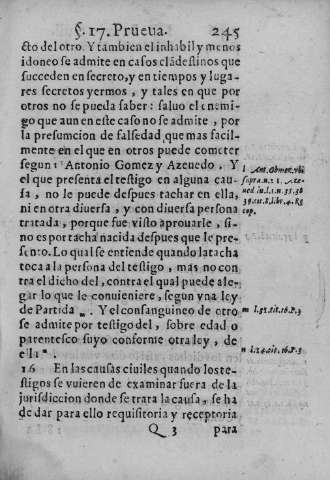 §. 17. Prueua. 245
cto del otro. Y tambien el inhabil y menos
idoneo se admite en casos clãdestinos que
succeden en secreto, y en tiempos y luga-
res secretos yermos, y tales en que por
otros no se pueda saber: saluo el enemi-
go que aun en este caso no se admite, por
la presumcion de falsedad, que mas facil-
mente en el que en otros puede cometer
segun l Antonio Gomez y Azeuedo. Y
el que presenta el testigo en alguna cau-
sa, no le puede despues tachar en ella,
ni en otra diuersa, y con diuersa persona
tratada, porque fue visto aprouarle, si-
no es por tacha nacida despues que le pre-
sento. Lo qual se entiende quando la tacha
toca a la persona del testigo, mas no con-
tra el dicho del, contra el qual puede ale-
gar lo que le conuieniere, segun vna ley
de Partida m. Y el consanguineo de otro
se admite por testigo del, sobre edad o
parentesco suyo conforme otra ley, de
ella n.
16 En las causas ciuiles quando los te-
stigos se vuieren de examinar fuera de la
jurisdiccion donde se trata la causa, se ha
de dar para ello requisitoria y receptoria
Q 3 para
l Ant. Gomez. vbi
supra n. 21. Aze-
ued in. l. 1. n. 35. 38
39. tit. 8. lib. 4. Re
cop.
m l. 32. tit. 16. P. 3
n l. 24. tit. 16. P. 3